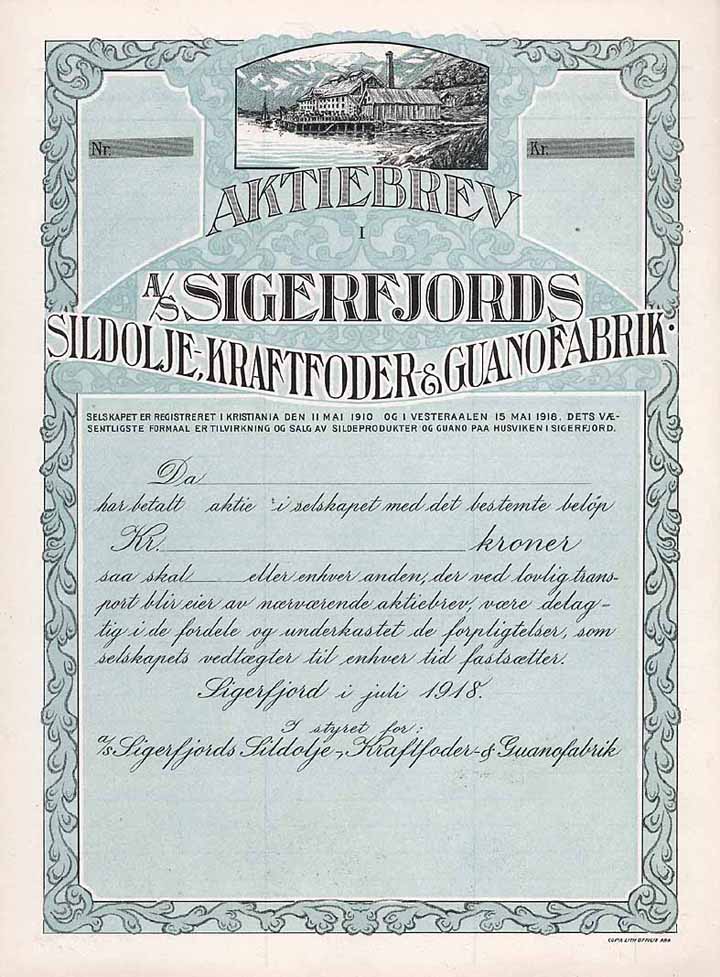 Nr.
Kr.
AKTIEBREV
I
A/S SIGERFJORDS
SILDOLJE-, KRAFTFODER- & GUANOFABRIK.
SELSKAPET ER REGISTRERET I KRISTIANIA DEN 11 MAI 1910 OG I VESTERAALEN 15 MAI 1918. DETS VÆ-
SENTLIGSTE FORMAAL ER TILVIRKNING OG SALG AV SILDEPRODUKTER OG GUANO PAA HUSVIKEN I SIGERFJORD.
Da
har betalt aktie i selskapet med det bestemte beløp
Kr. kroner
saa skal eller enhver anden, der ved lovlig trans-
port blir eier av nærværende aktiebrev, være delag-
tig i de fordele og underkastet de forpligtelser, som
selskapets vedtægter til enhver tid fastsætter.
Sigerfjord i juli 1918.
I styret for:
A/S Sigerfjords Sildolje-, Kraftfoder- & Guanofabrik